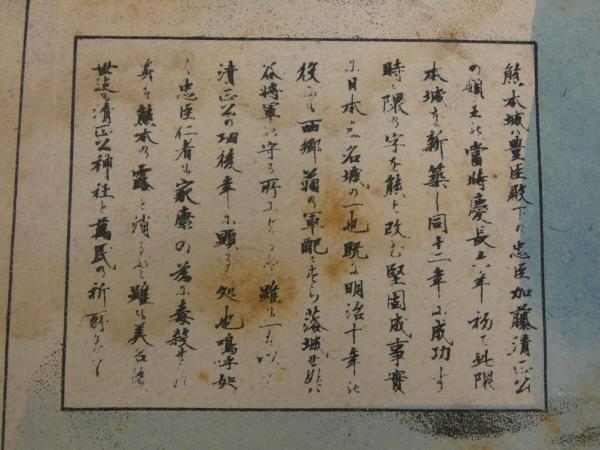 熊本城ハ豊臣殿下の忠臣加藤清正公
の領主にて當時慶長六年初て此隈
本城を新築し同十二年に成功す
時に隈の字を熊と改む堅固成事實
に日本三名城の一也既に明治十年に
後にも西郷翁の軍配にすら落城せぬハ
谷将軍の守る所による雖も一ハ
清正公の功後年に顕るる処也嗚呼
忠臣仁者も家康の為に毒殺せ
身は熊本の露と消ると雖も美名
世迄も清正公神社と萬民の祈所